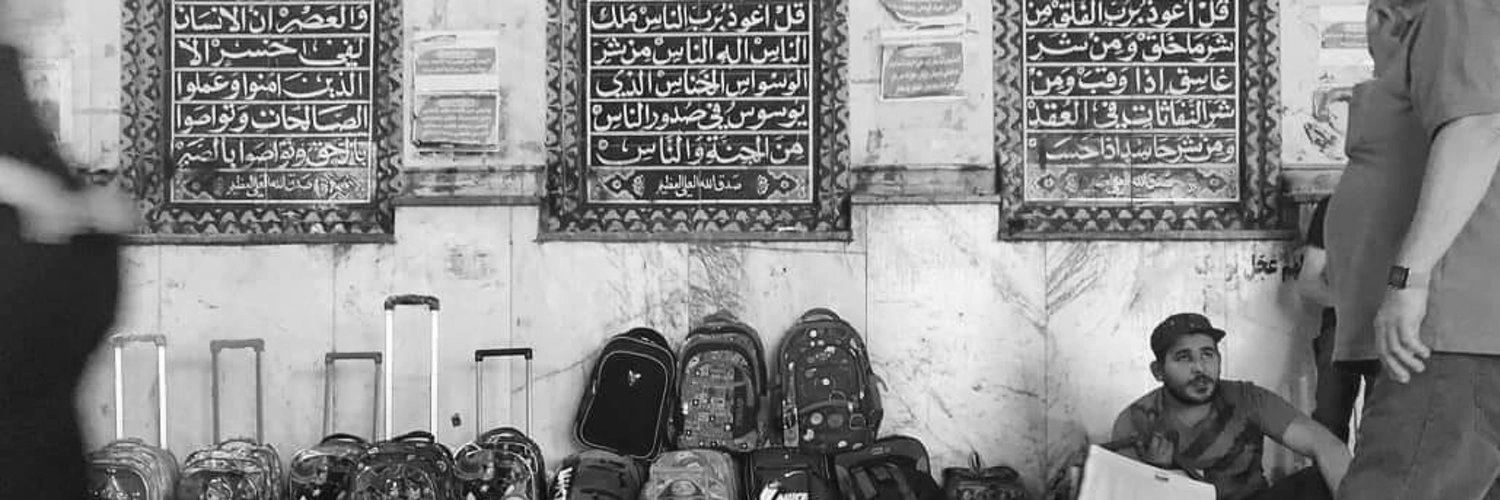 قل أعوذ برب الفلق من
شر ما خلق ومن شر
غاسق إذا وقب ومن
شر النفاثات في العقد
ومن شر حاسد إذا حسد
صدق الله العلي العظيم
قل أعوذ برب الناس ملك
الناس إله الناس من شر
الوسواس الخناس الذي
يوسوس في صدور الناس
من الجنة والناس
صدق الله العلي العظيم
والعصر إن الإنسان
لفي خسر إلا
الذين آمنوا وعملوا
الصالحات وتواصوا
بالحق وتواصوا بالصبر
صدق الله العلي العظيم
NIKE